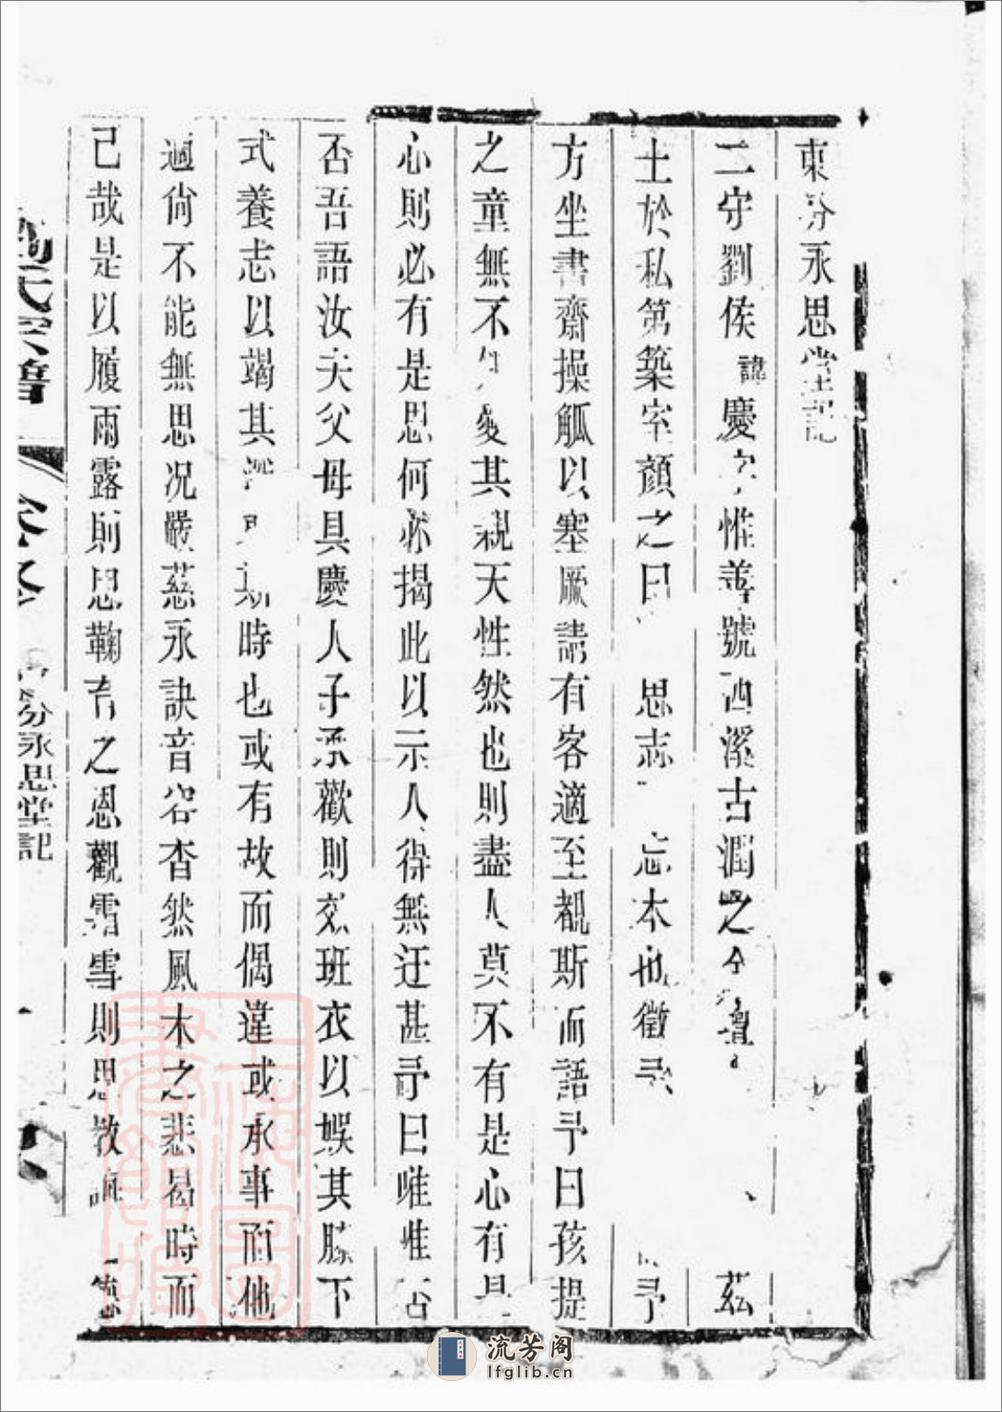 東分永思堂記
二守劉侯諱慶字惟善號西溪古潤之今壇 茲
土於私第築室顏之曰 思志 忘本也徵予
方坐書齋操觚以塞厥請有客適至覩斯而語予曰孩提
之童無不 愛其親天性然也則盡人莫不有是心有是
心則必有是思何必揭此以示人得無迂甚予曰唯唯否
否吾語汝夫父母具慶人子承歡則效班衣以娛其膝下
式養志以竭其 時也或有故而偶違或承事而他
適尚不能無思況嚴慈永訣音容杳然風木之悲曷時而
已哉是以履雨露則思鞠育之恩觀霜雪則思教誨
劉氏宗譜
東分永思堂記
流芳阁
lfglib.cn